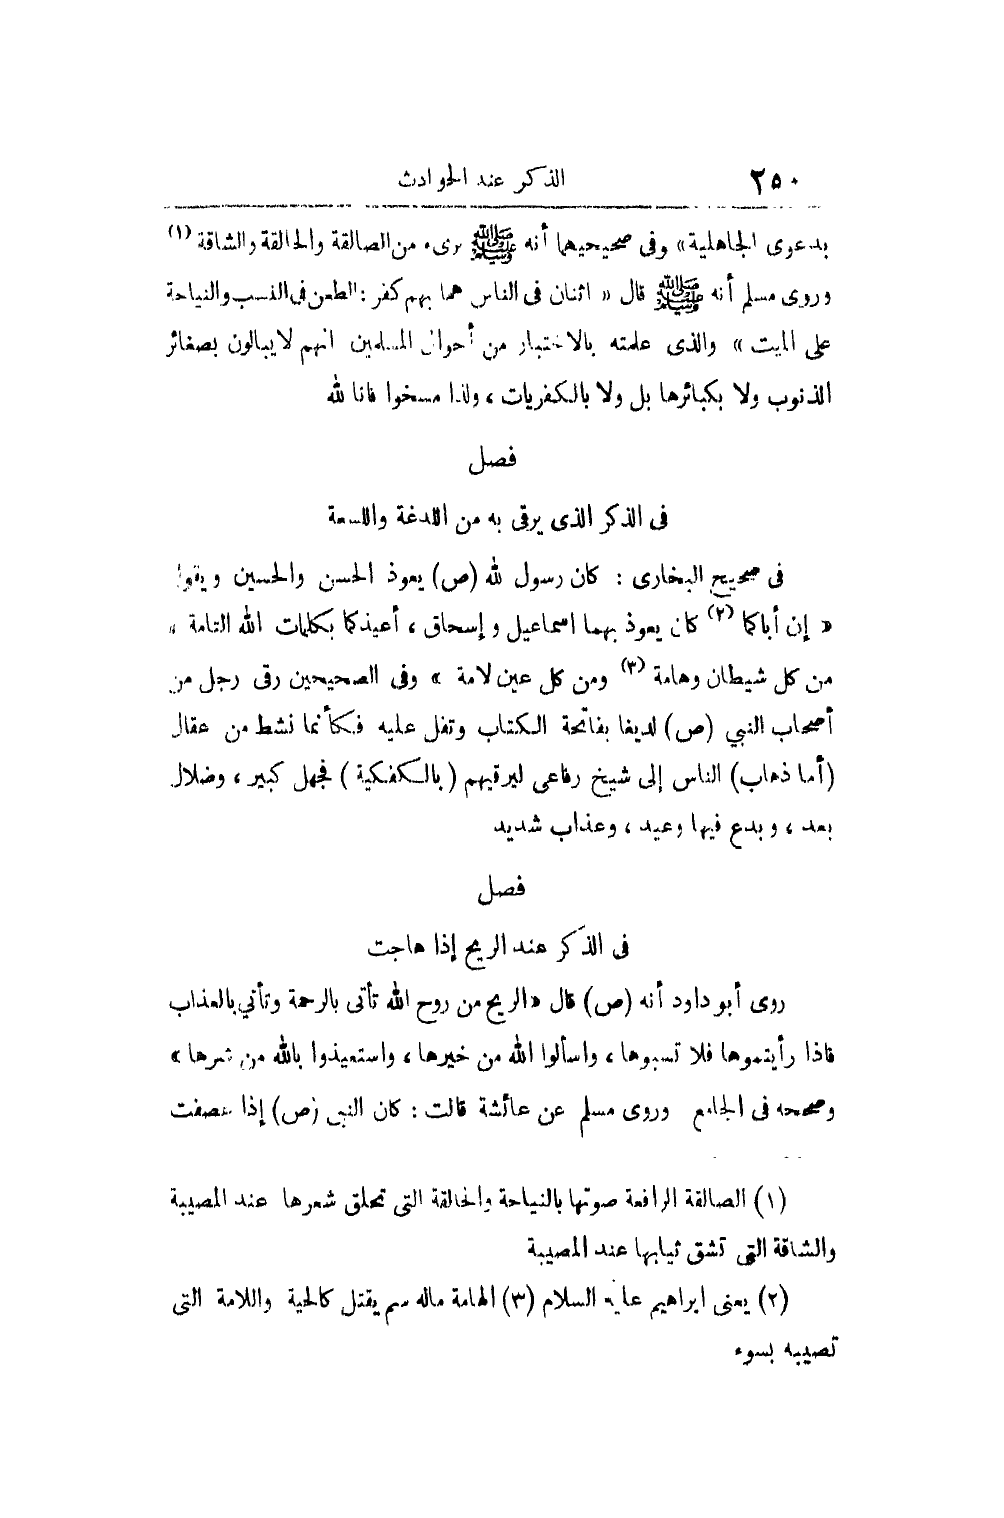 ٢٥٠ الذكر عند الحوادث
بدعوى الجاهلية» وفى صحيحيهما أنه ﷺ برىء من الصالقة والحالقة والشاقة (١)
وروى مسلم أنه ﷺ قال « اثنان فى الناس هما بهم كفر : الطعن فى النسب والنياحة
على الميت » والذى علمته بالاختبار من أحوال المسلمين انهم لايبالون بصغائر
الذنوب ولا بكبائرها بل ولا بالكفريات ، ولذا مسخوا فانا لله
فصل
فى الذكر الذى يرقى به من اللدغة واللسعة
فى صحيح البخارى : كان رسول لله (ص) يعوذ الحسن والحسين ويقول
« إن أباكما (٢) كان يعوذ بهما اسماعيل وإسحاق ، أعيذكما بكلمات الله التامة ،
من كل شيطان وهامة (٣) ومن كل عين لامة » وفى الصحيحين رقى رجل من
أصحاب النبي (ص) لديغا بفاتحة الكتاب وتفل عليه فكأنما نشط من عقال
(أما ذهاب) الناس إلى شيخ رفاعى ليرقيهم ( بالكفكية ) فجهل كبير ، وضلال
بعد ، وبدع فيها وعيد ، وعذاب شديد
فصل
فى الذكر عند الريح إذا هاجت
روى أبو داود أنه (ص) قال «الريح من روح الله تأتى بالرحمة وتأتي بالعذاب
فاذا رأيتموها فلا تسبوها ، واسألوا الله من خيرها ، واستعيذوا بالله من شرها »
وصححه فى الجامع وروى مسلم عن عائشة قالت : كان النبى (ص) إذا عصفت
(١) الصالقة الرافعة صوتها بالنياحة والحالقة التى تحلق شعرها عند المصيبة
والشاقة التى تشق ثيابها عند المصيبة
(٢) يعنى ابراهيم عليه السلام (٣) الهامة ماله سم يقتل كالحية واللامة التى
تصيبه بسوء